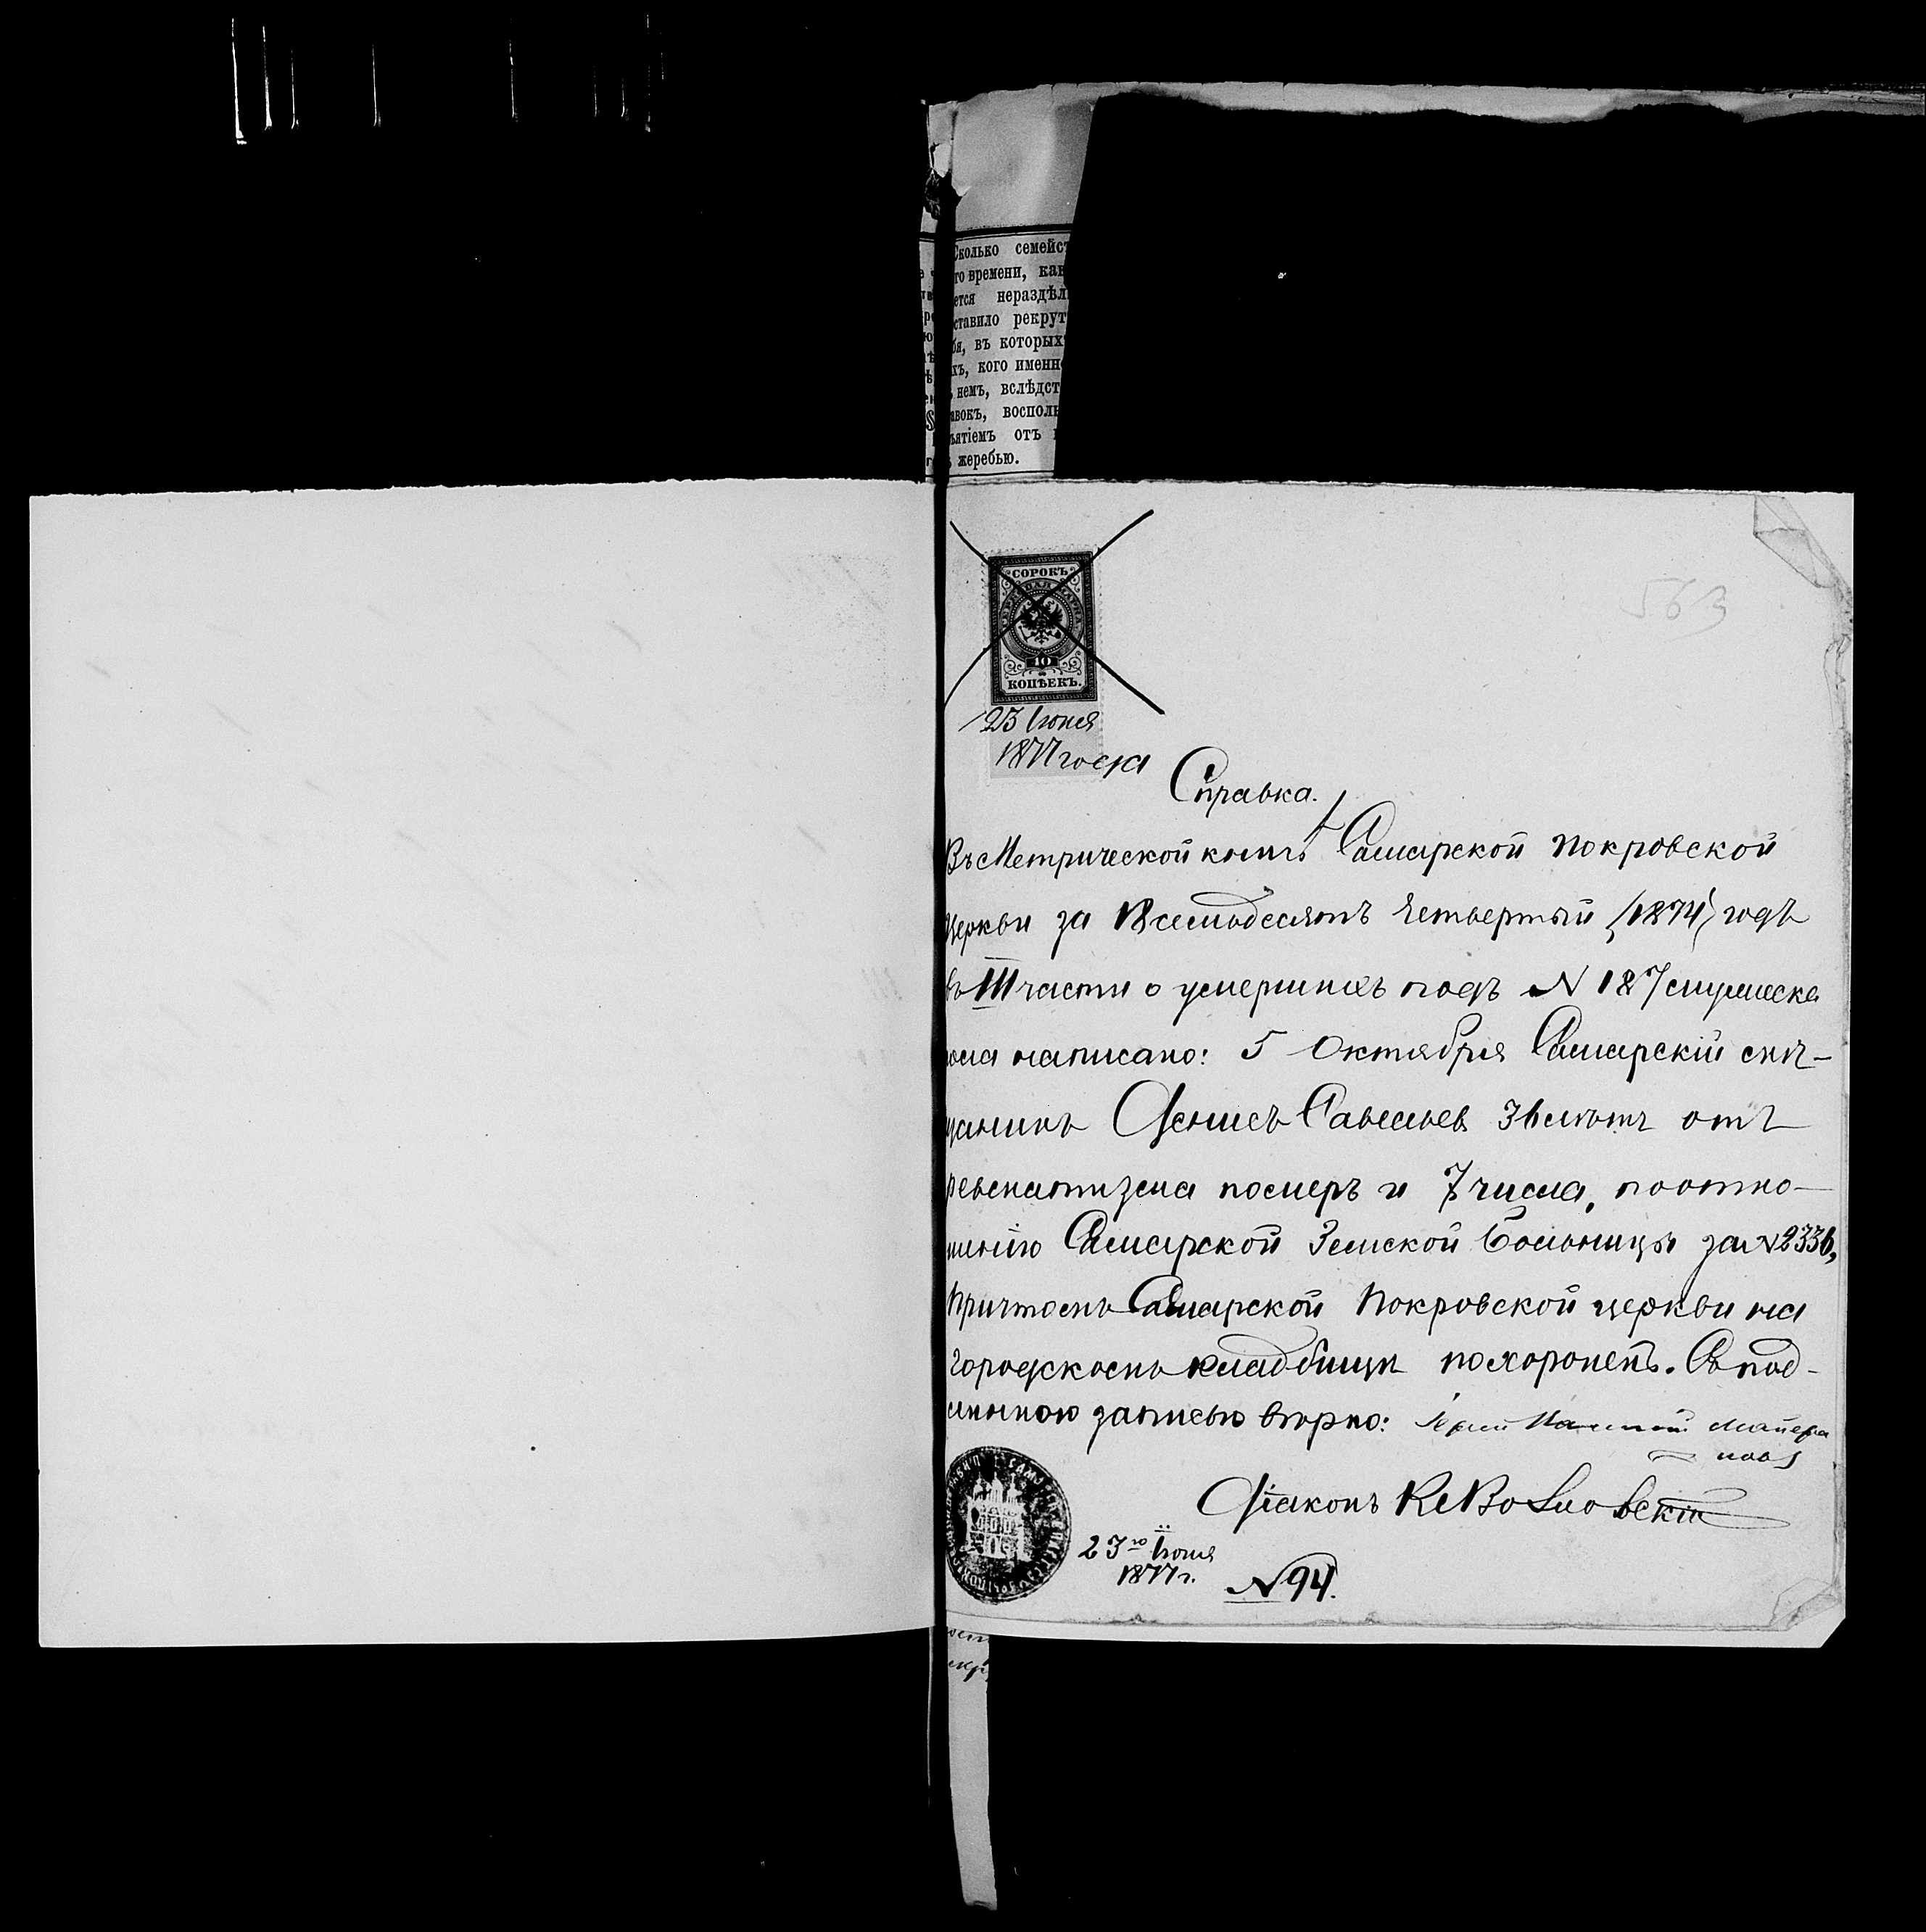 Сколько семейст
го времени, как
ется нераздѣл
ставило рекрут
бя, въ которыхъ
хъ, кого именно
немъ, вслѣдст
авокъ, восполь
ъятіемъ отъ
жеребью.
563
СОРОКЪ
40
КОПѢЕКЪ.
23 Іюня
1877 года
Справка.
Въ Метрической книгѣ Самарской Покровской
Церкви за 18 семьдесятъ четвертый (1874) годъ
въ III части о умершихъ подъ N 187 мужеска
пола написано: 5 Октября Самарскій мѣ-
щанинъ Денисъ Савельевъ 36 лѣтъ отъ
ревматизма померъ и 7 числа, по отно-
шенію Самарской Земской Больницы за N 2336,
Причтомъ Самарской Покровской церкви на
городскомъ кладбищѣ похороненъ. Съ под-
линною записью вѣрно: Іерей
Діаконъ
23го Іюня
1877 г.
N 94.